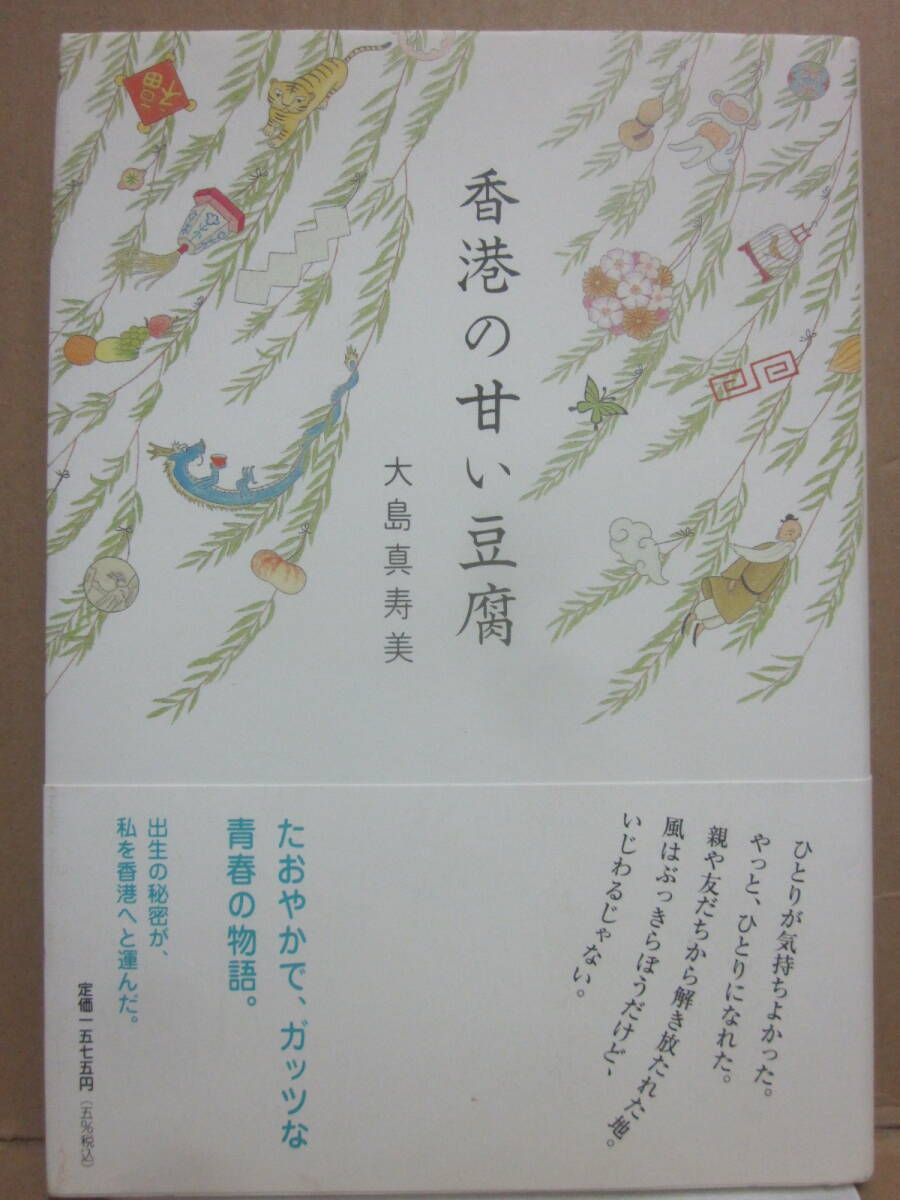 香港の甘い豆腐
大島真寿美
福
ひとりが気持ちよかった。
やっと、ひとりになれた。
親や友だちから解き放たれた地。
風はぶっきらぼうだけど、
いじわるじゃない。
たおやかで、ガッツな
青春の物語。
出生の秘密が、
私を香港へと運んだ。
定価一五七五円（五%税込）